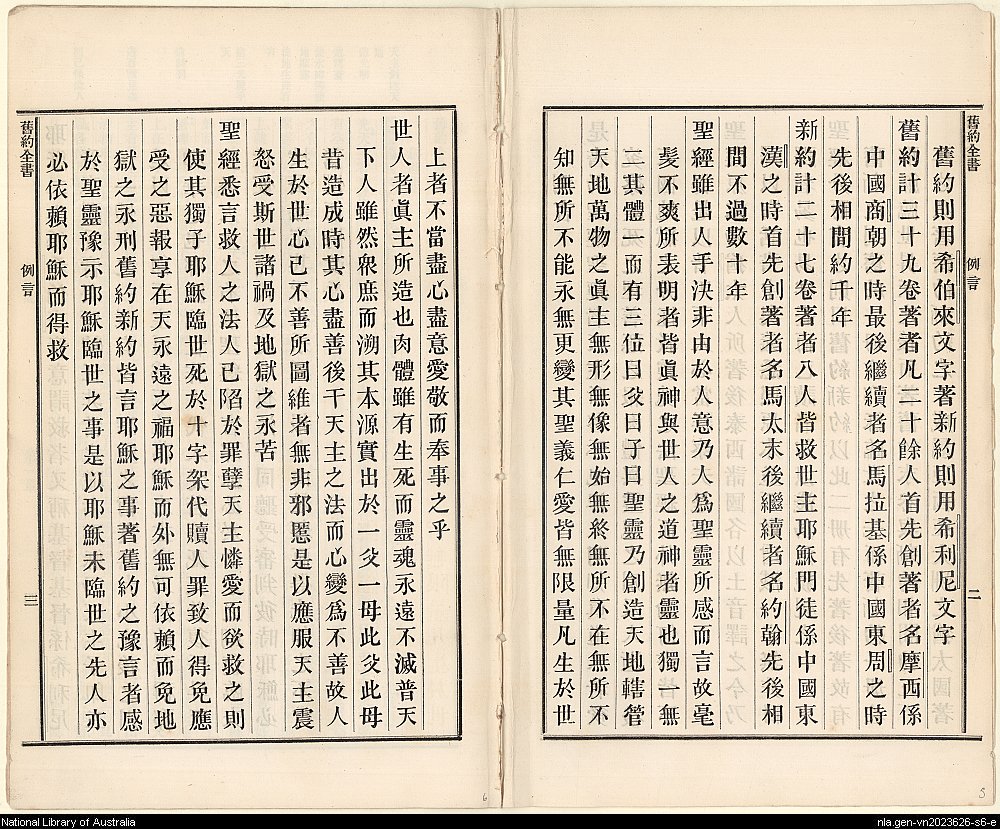 舊約全書
例言
二
舊約則用希伯來文字著新約則用希利尼文字
舊約計三十九卷著者凡二十餘人首先創著者名摩西係
中國商朝之時最後繼續者名馬拉基係中國東周之時
先後相間約千年
新約計二十七卷著者八人皆救世主耶穌門徒係中國東
漢之時首先創著者名馬太末後繼續者名約翰先後相
間不過數十年
聖經雖出人手決非由於人意乃人爲聖靈所感而言故毫
髮不爽所表明者皆眞神與世人之道神者靈也獨一無
二其體無而有三位曰父曰子曰聖靈乃創造天地轄管
天地萬物之眞主無形無像無始無終無所不在無所不
知無所不能永無更變其聖義仁愛皆無限量凡生於世
上者不當盡心盡意愛敬而奉事之乎
世人者眞主所造也肉體雖有生死而靈魂永遠不滅普天
下人雖然衆庶而溯其本源實出於一父一母此父此母
昔造成時其心盡善後干天主之法而心變爲不善故人
生於世心已不善所圖維者無非邪慝是以應服天主震
怒受斯世諸禍及地獄之永苦
聖經悉言救人之法人已陷於罪孽天主憐愛而欲救之則
使其獨子耶穌臨世死於十字架代贖人罪致人得免應
受之惡報享在天永遠之福耶穌而外無可依賴而免地
獄之永刑舊約新約皆言耶穌之事著舊約之豫言者感
於聖靈豫示耶穌臨世之事是以耶穌未臨世之先人亦
必依賴耶穌而得救
舊約全書
例言
三
6
5
National Library of Australia
nla.gen-vn2023626-s6-e